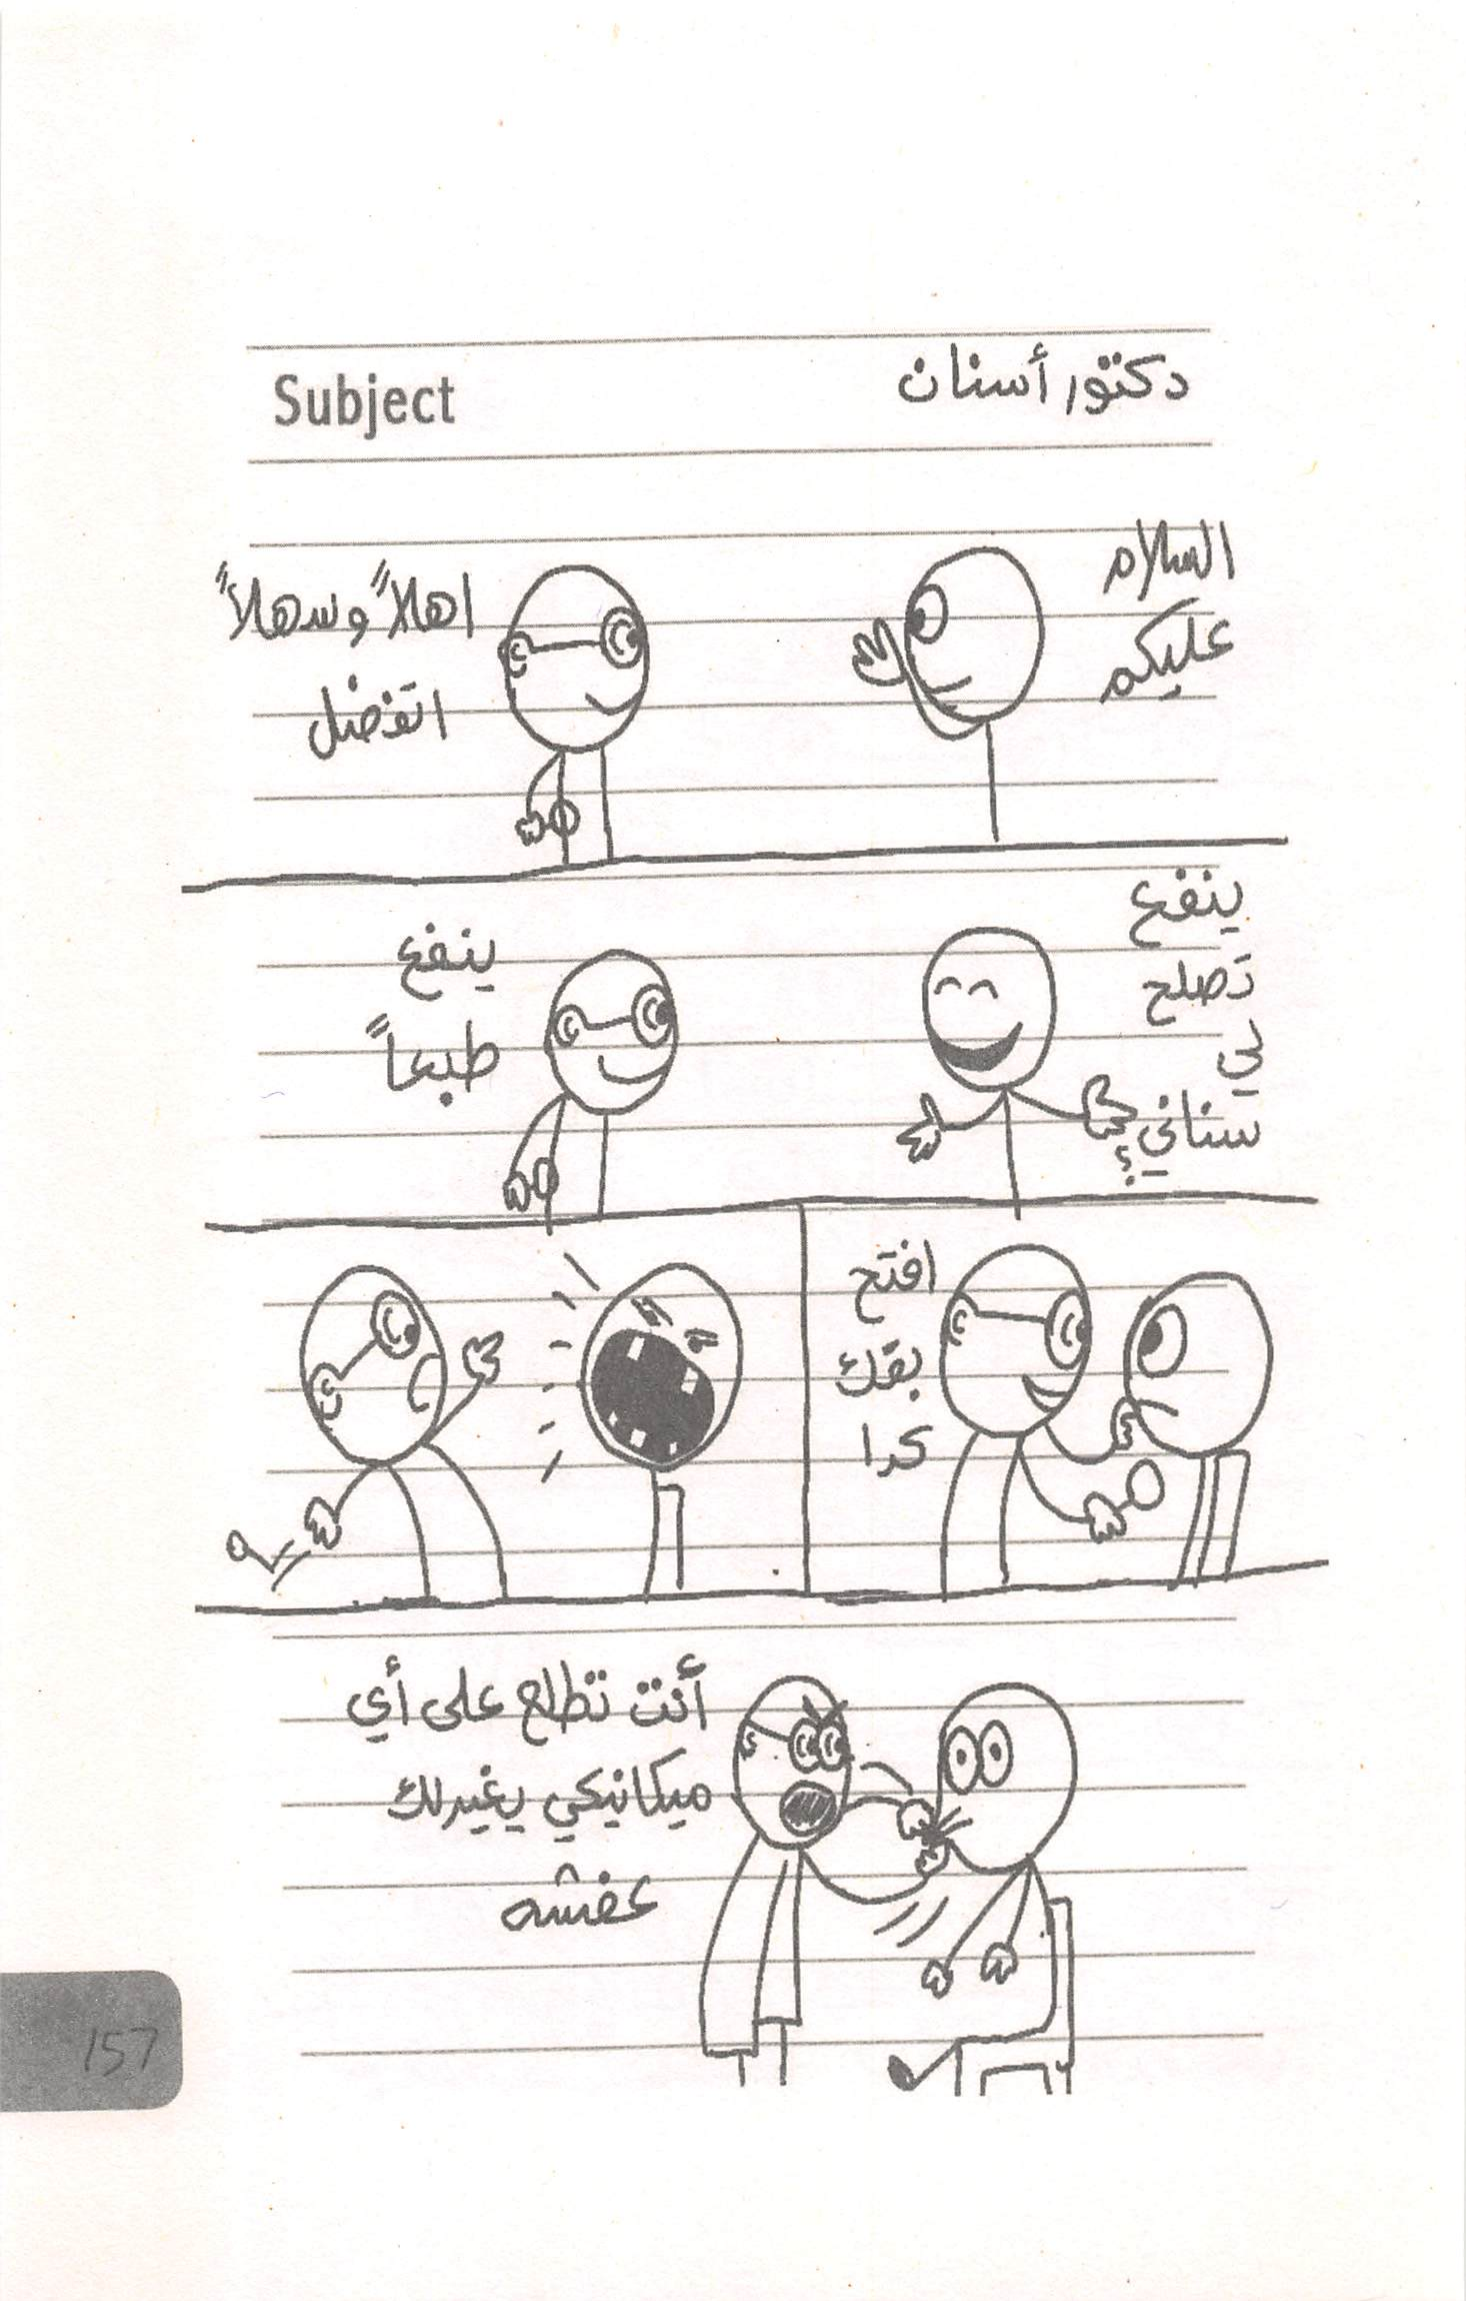 Subject
دكتور أسنان
السلام
عليكم
اهلاً وسهلاً
اتفضل
ينفع
تصلح
لي
سناني؟
ينفع
طبعاً
افتح
بقك
كدا
أنت تطلع على أي
ميكانيكي يغيرلك
عفشه
157